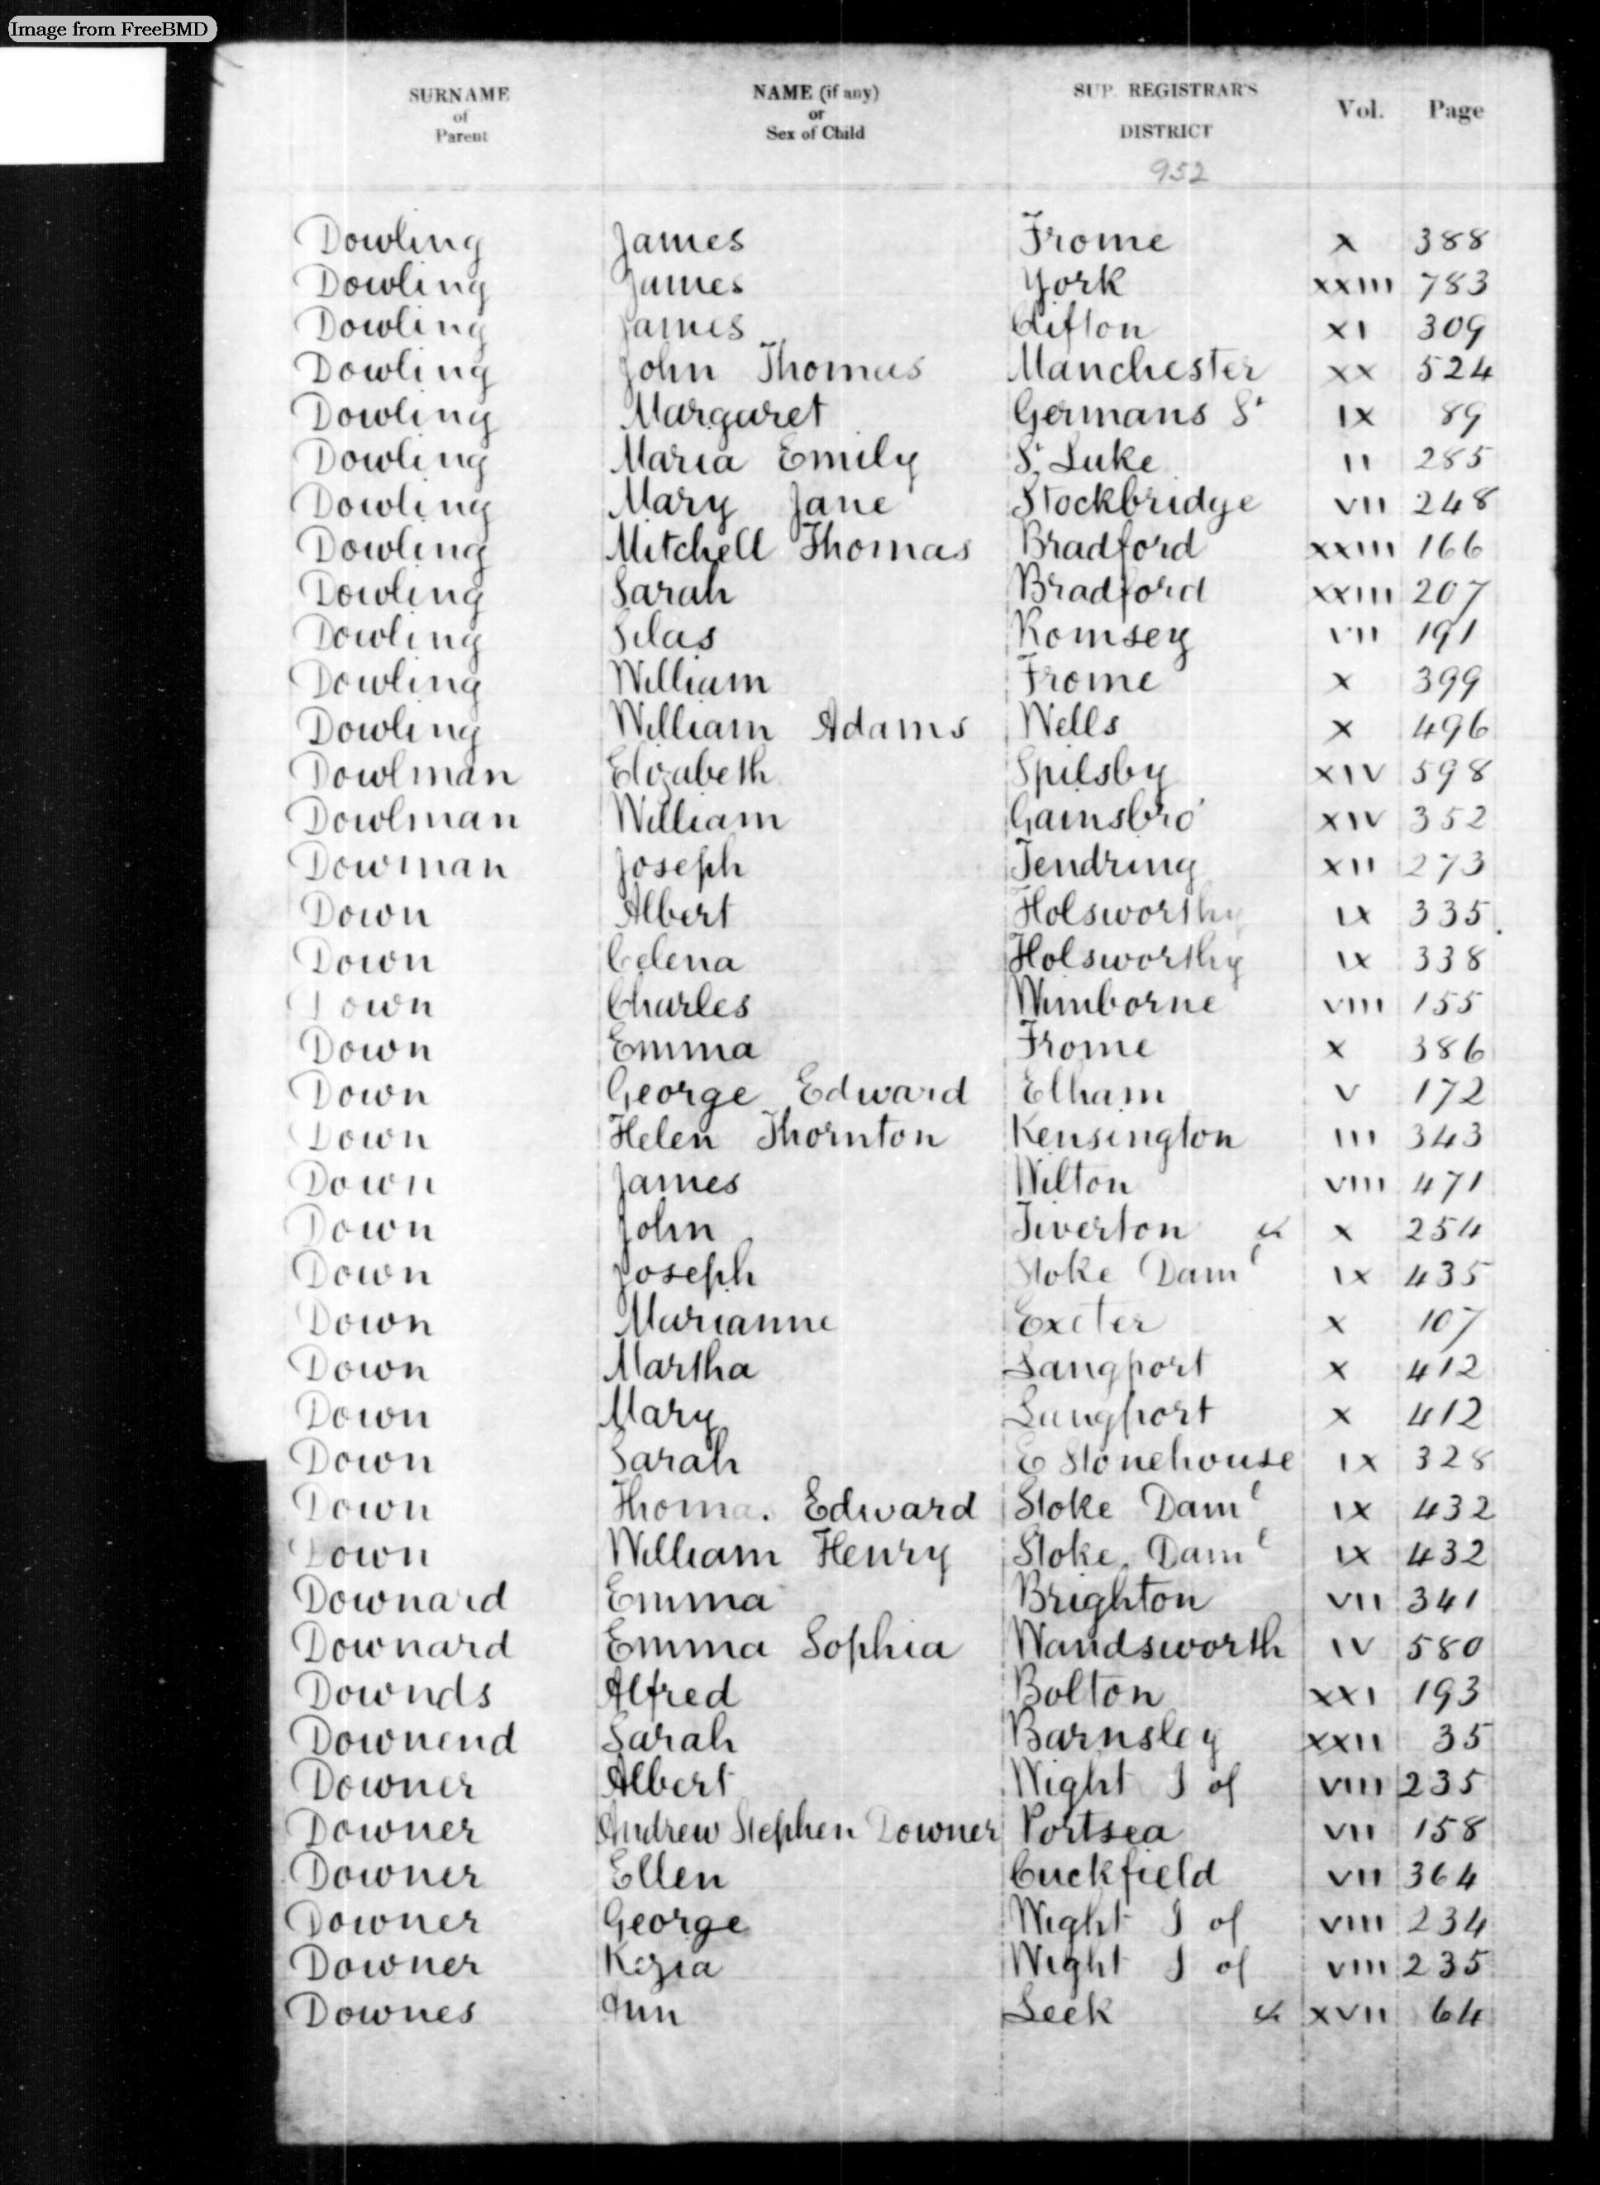 Image from FreeBMD
SURNAME of Parent NAME (if any) or Sex of Child SUP. REGISTRAR'S DISTRICT Vol. Page
952
Dowling James Frome X 388
Dowling James York XXIII 783
Dowling James Clifton XI 309
Dowling John Thomas Manchester XX 524
Dowling Margaret Germans St IX 89
Dowling Maria Emily St Luke II 285
Dowling Mary Jane Stockbridge VII 248
Dowling Mitchell Thomas Bradford XXIII 166
Dowling Sarah Bradford XXIII 207
Dowling Silas Romsey VII 191
Dowling William Frome X 399
Dowling William Adams Wells X 496
Dowlman Elizabeth Spilsby XIV 598
Dowlman William Gainsbro' XIV 352
Dowman Joseph Tendring XII 273
Down Albert Holsworthy IX 335
Down Celena Holsworthy IX 338
Down Charles Wimborne VIII 155
Down Emma Frome X 386
Down George Edward Elham V 172
Down Helen Thornton Kensington III 343
Down James Wilton VIII 471
Down John Tiverton &c X 254
Down Joseph Stoke Daml IX 435
Down Marianne Exeter X 107
Down Martha Langport X 412
Down Mary Langport X 412
Down Sarah E Stonehouse IX 328
Down Thomas Edward Stoke Daml IX 432
Down William Henry Stoke Daml IX 432
Downard Emma Brighton VII 341
Downard Emma Sophia Wandsworth IV 580
Downds Alfred Bolton XXI 193
Downend Sarah Barnsley XXII 35
Downer Albert Wight I of VIII 235
Downer Andrew Stephen Downer Portsea VII 158
Downer Ellen Cuckfield VII 364
Downer George Wight I of VIII 234
Downer Kezia Wight I of VIII 235
Downes Ann Leek &c XVII 64